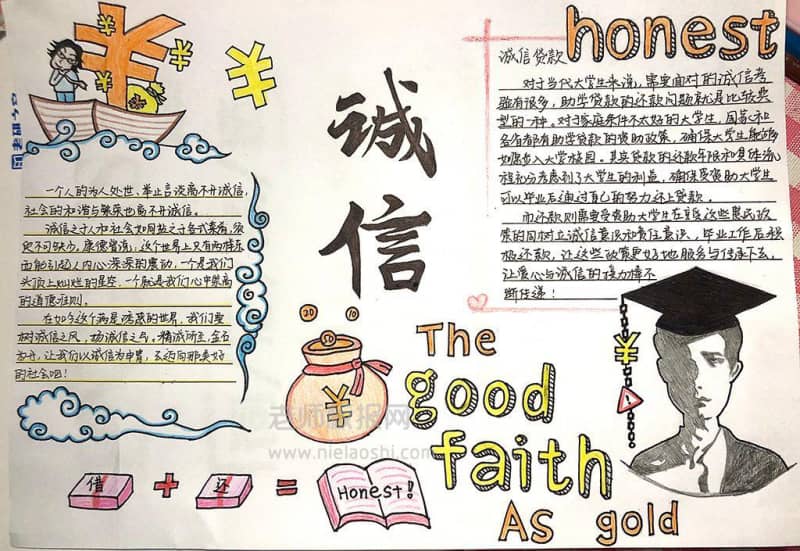 honest
诚信贷款
对于当代大学生来说，需要面对的诚信考
验有很多，助学贷款的还款问题就是比较典
型的一种。对于家庭条件不太好的大学生，国家和
各省都有助学贷款的资助政策，确保大学生能够
如愿步入大学校园。其实贷款的还款年限和具体流
程充分考虑到了大学生的利益，确保受资助大学生
可以毕业后通过自己的努力还上贷款。
而还款则需要受资助大学生在享受这些惠民政
策的同时树立诚信意识和责任意识，毕业工作后积
极还款，让这些政策更好地服务与传递下去，
让爱心与诚信的接力棒不
断传递！
诚信
一个人的为人处世、举止言谈离不开诚信，
社会的和谐与繁荣也离不开诚信。
诚信之于人和社会如同
不可缺少。康德曾说：这个世界上只有两样东
西能引起人内心深深的震动，一个是我们
头顶上灿烂的星空，一个就是我们心中崇高
的道德准则。
在如今这个满是诱惑的世界，我们要
树诚信之风，扬诚信之气，精诚所至，金石
为开，让我们以诚信为甲胄，去迈向那美好
的社会吧！
¥
20
50
10
¥
¥
The
good
faith
As gold
借 + 还 = Honest!
老师板报网
www.nielaoshi.com